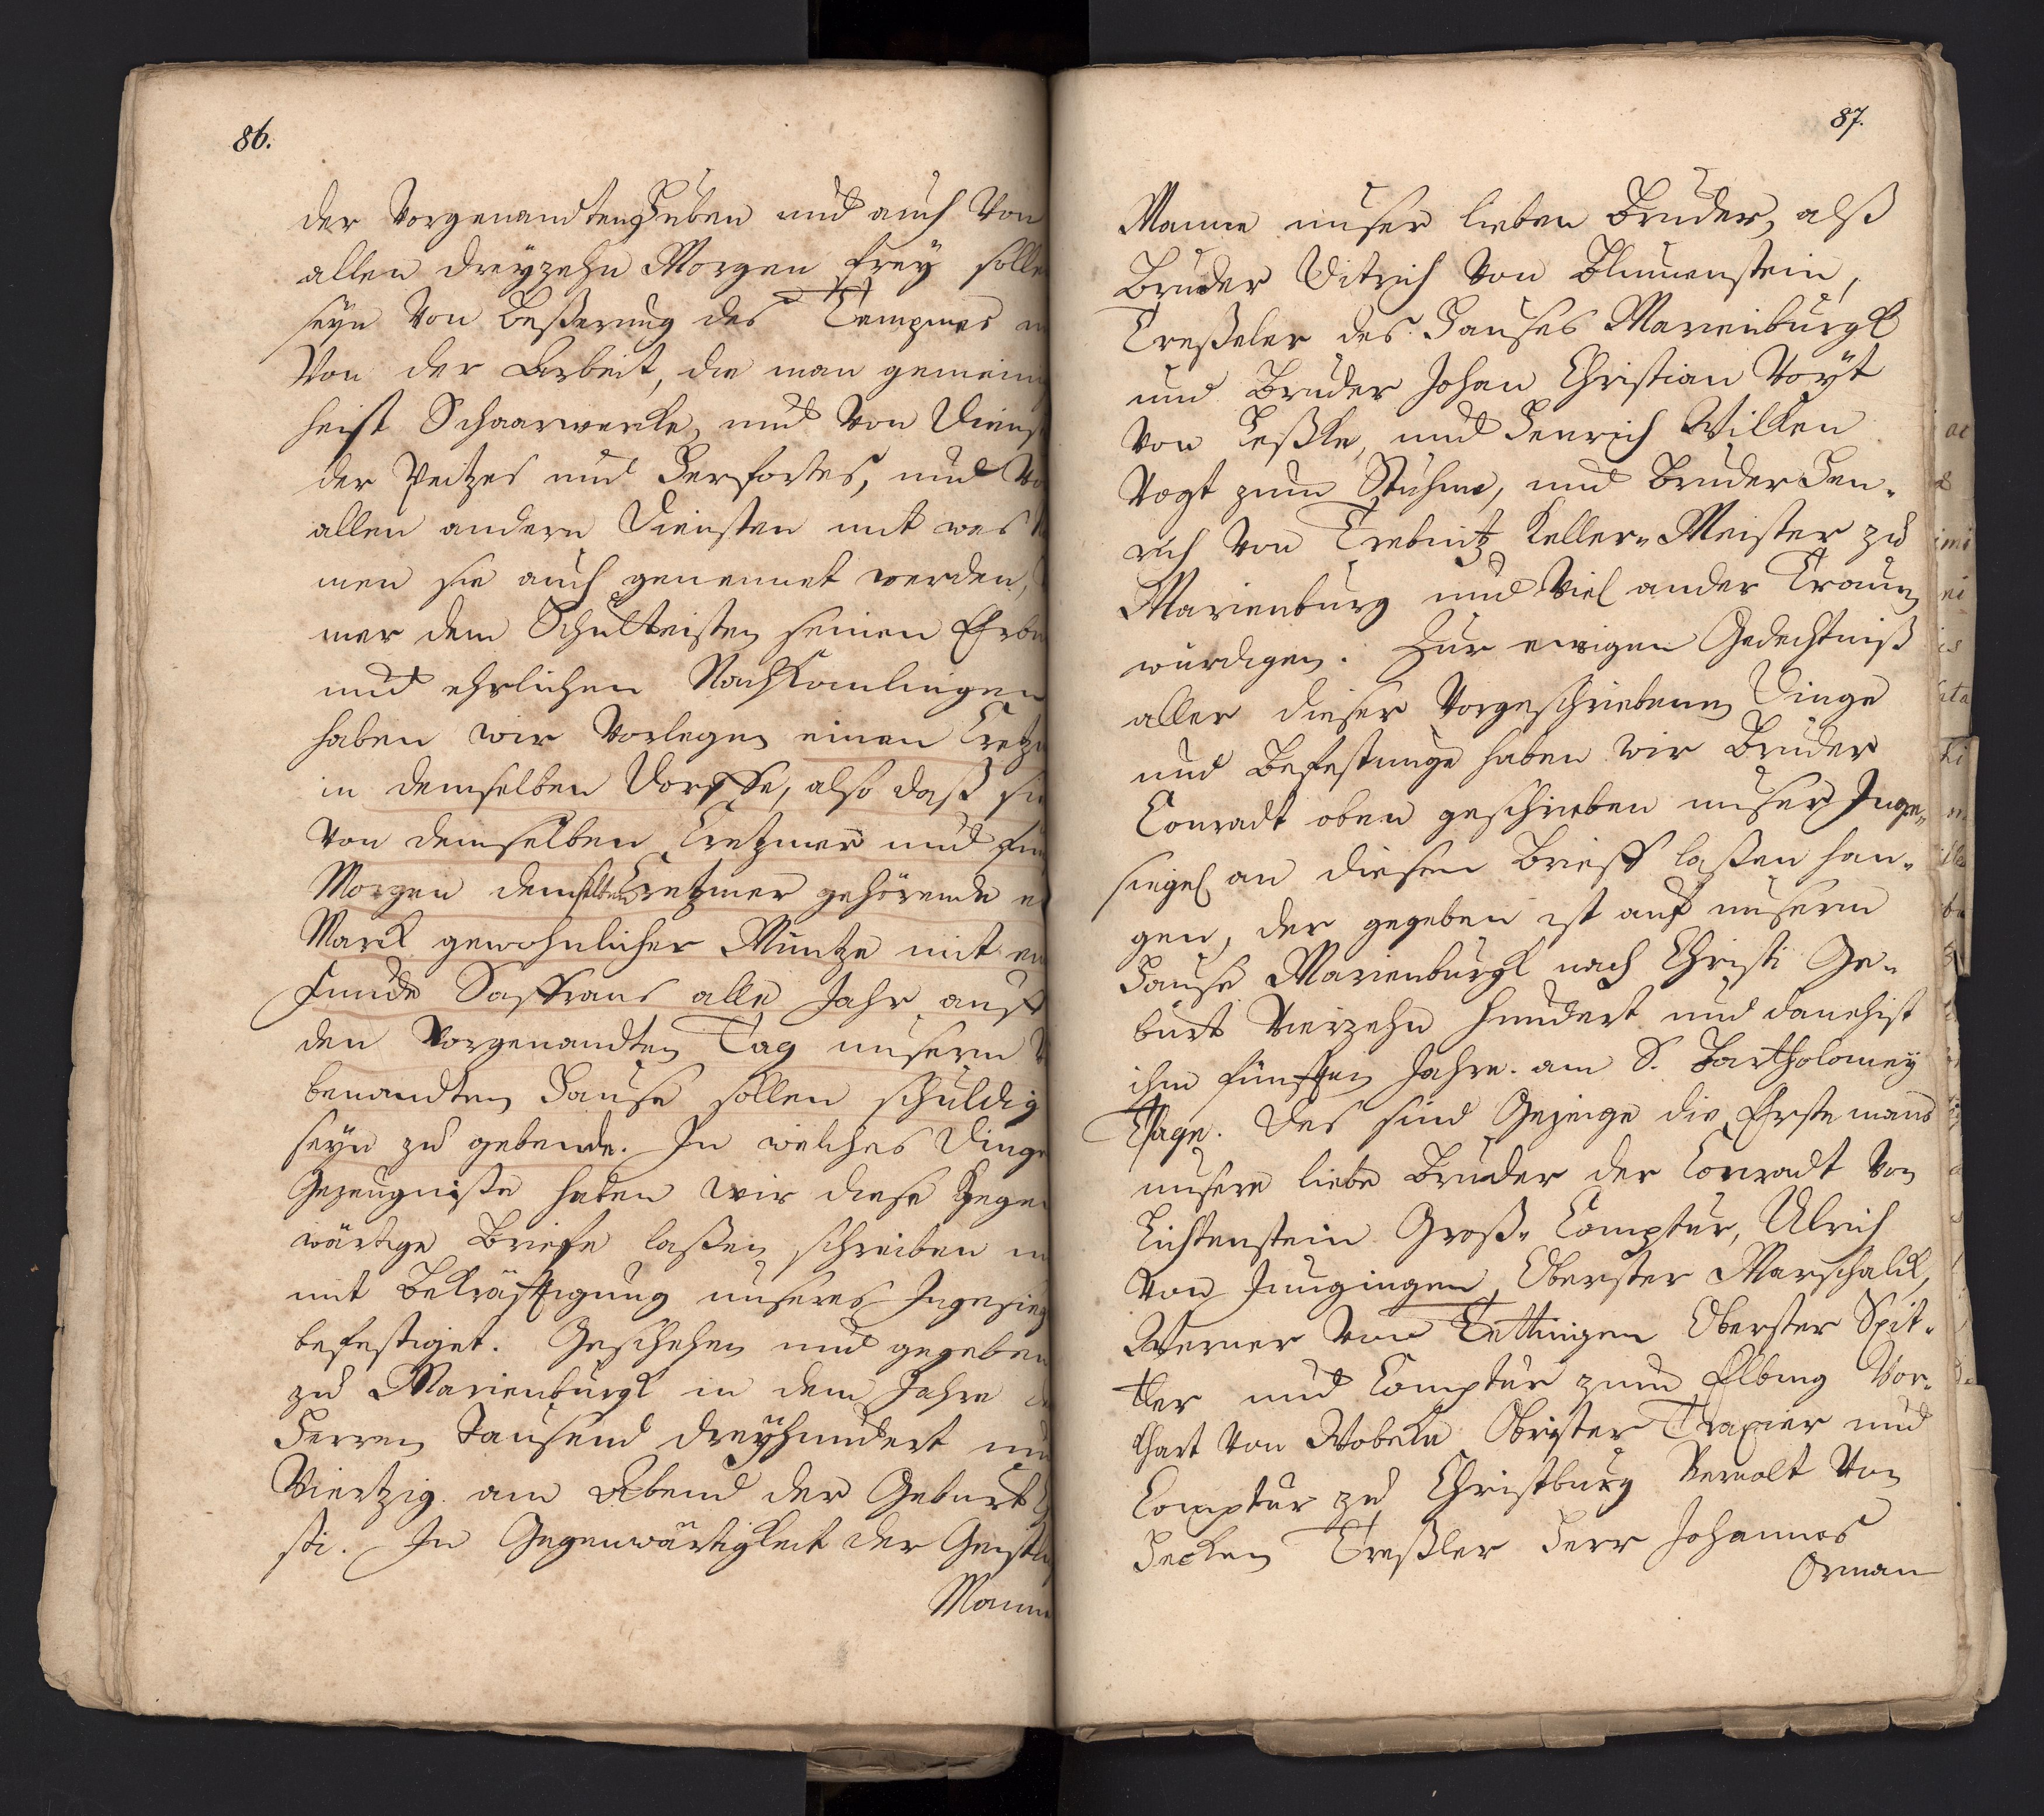 86.
der Vorgenandten Huben und auch Von
allen dreyzehn Morgen frey solle
seyn Von Beßerung des Tempmes
Von der Arbeit, die man gemein
heist Schaarwerke, und Von Diens
der Reitzes und Herfortes, und Vo
allen andern Diensten mit wes
men sie auch genennet werden,
mer dem Schultheisten seinen Erbe
und ehrlichen Nachkomlingen
haben wir Vorlegen einen Cretz
in demselben Dorffe, also daß sie
Von demselben Cretzmer und
Morgen demselben Cretzmer gehörende e
Marck gewohnlicher Müntze mit ei
Funde Saffrans alle Jahr auff
den Vorgenandten Tag unserm
benandten Hause sollen schuldig
seyn zu gebende. In welches Dinge
Gezeugniße haben wir diese Gegen
wärtige Briefe laßen schreiben
mit Bekräfftigung unseres Ingesieg
befestiget. Geschehen und gegeben
zu Marienburgk in dem Jahre
Herren Tausend dreyhundert und
Viertzig am Abend der Geburt
sti. In Gegenwärtigkeit der Geistl
Manne
87.
Manne unser lieben Bruder, alß
Bruder Ditrich Von Blumenstein,
Treßeler des Hauses Marienburgk
und Bruder Johan Christian Voyt
Von Leßke, und Henrich Wilken
Vogt zum Stuhme, und Bruder Hen-
rich Von Trebnitz Keller-Meister zu
Marienburg und Viel ander Trauw
würdigen. Zur ewigen Gedechtniß
aller dieser Vorgeschriebenen Dinge
und Befestunge haben wir Bruder
Conradt oben geschrieben unser Inge-
siegel an diesen Brieff laßen han-
gen, der gegeben ist auf unserm
Hause Marienburgk nach Christi Ge-
burt Vierzehn hundert und danehist
ihm fünfften Jahre. am S. Bartholomey
Tage. Des sind Gezeuge die Erstemans
unsere liebe Bruder der Conradt Von
Lichtenstein Groß-Comptur, Ulrich
Von Jungingen Oberster Marschalck,
Werner Von Tettingen Oberster Spit-
tler und Comptur zum Elbing Vor-
chart Von Wobeke Obrister Trapier und
Comptur zu Christburg Bernolt Von
Hecken Treßler Herr Johannes
Orman